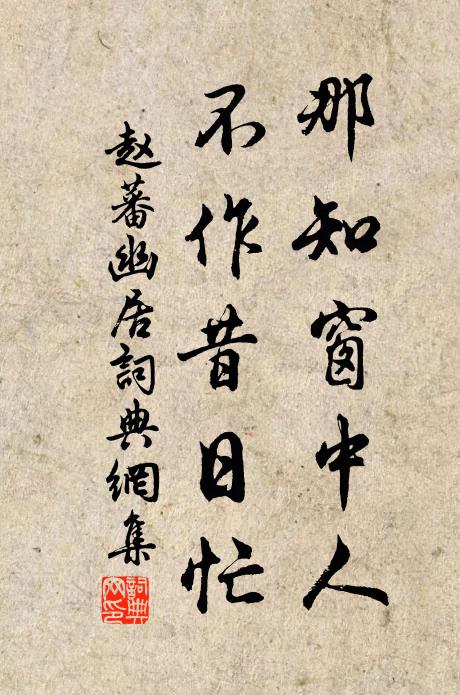 那知窗中人
不作昔日忙
赵蕃幽居詞典網集
詞典網印